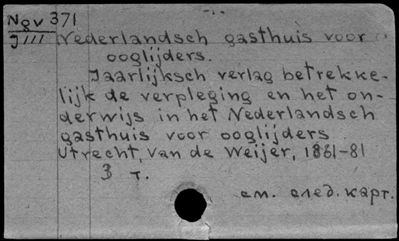 Ngv 371
J III Nederlandsch gasthuis voor
ooglijders.
Jaarlijksch verlag betrekke-
lijk de verpleging en het on-
derwijs in het Nederlandsch
gasthuis voor ooglijders
Utrecht, van de Weijer, 1861-81
3 т.
см. след. карт.